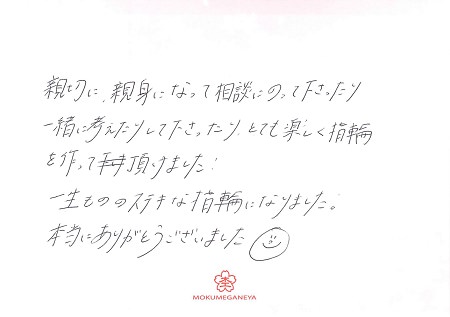 親切に、親身になって相談にのって下さったり
一緒に考えたりして下さったり、とても楽しく指輪
を作って頂けました!
一生もののステキな指輪になりました。
本当にありがとうございました
MOKUMEGANEYA